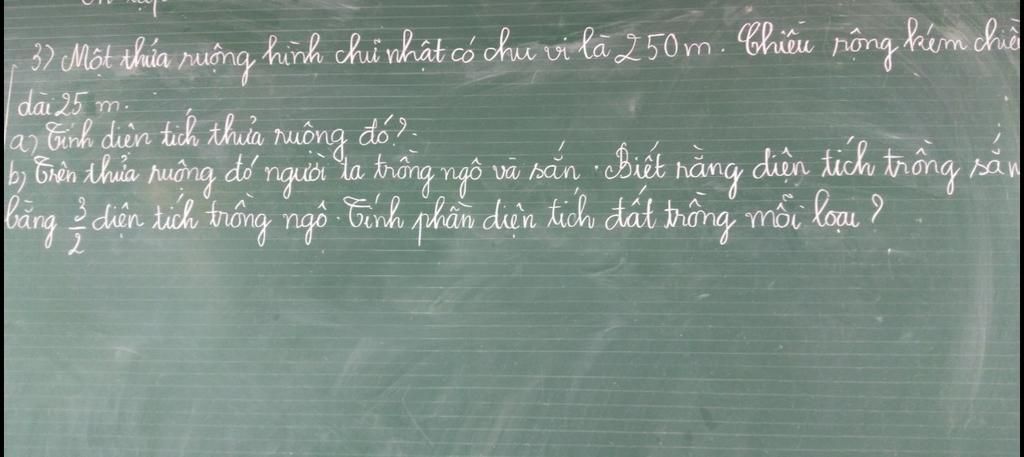 3) Một thửa ruộng hình chữ nhật có chu vi là 250m. Chiều rộng kém chiề
dài 25 m.
a) Tính diện tích thửa ruộng đó?.
b) Trên thửa ruộng đó người ta trồng ngô và sắn. Biết rằng diện tích trồng sắn
bằng 3/2 diện tích trồng ngô. Tính phần diện tích đất trồng mỗi loại?